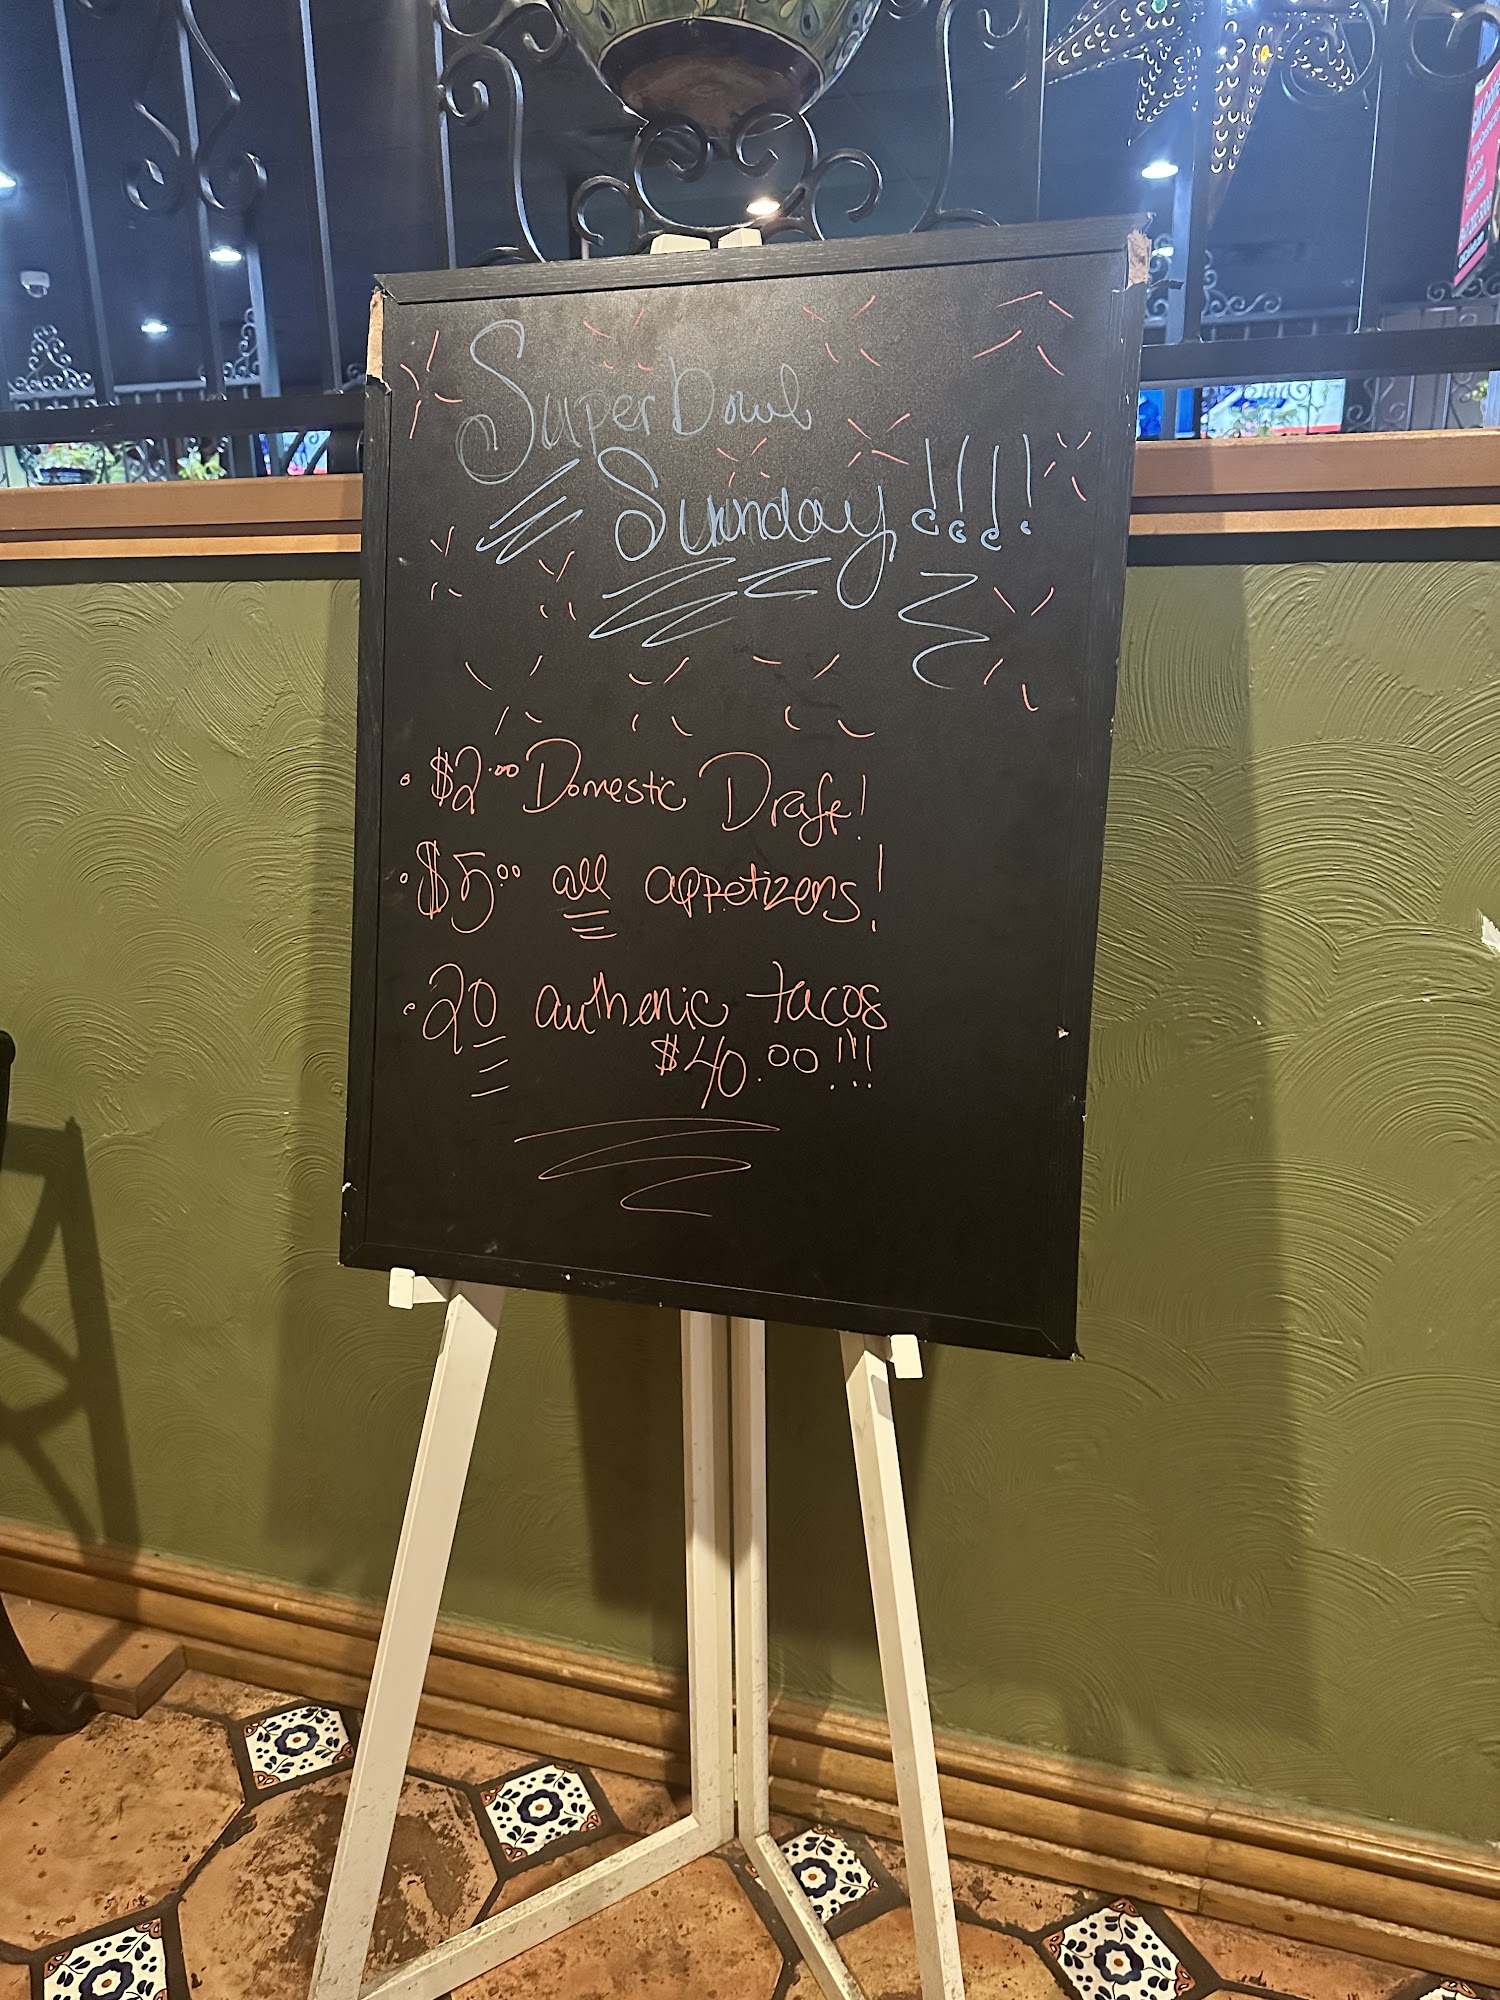 Super Bowl
Sunday!!!!
• $2.00 Domestic Draft!
• $5.00 all appetizers!
• 20 authenic tacos
$40.00!!!